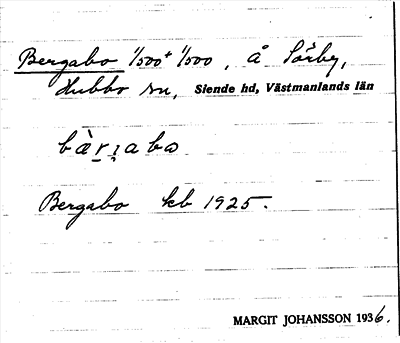 Bergabo 1/500 + 1/500, å Sörby,
Hubbo sn, Siende hd, Västmanlands län
bàrıabω
Bergabo kb 1925.
MARGIT JOHANSSON 1936.